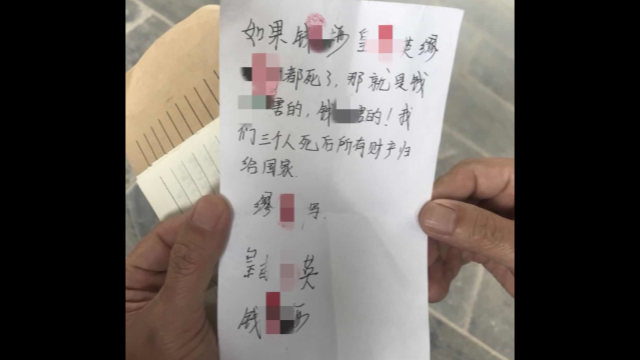 如果钱 英缪
都死了，那就是钱
害的，钱 害的！我
们三个人死后所有财产归
给国家
缪
英
钱